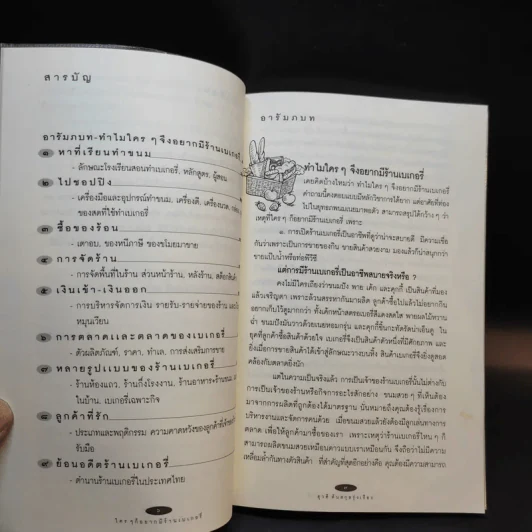 สารบัญ
อารัมภบท-ทำไมใคร ๆ จึงอยากมีร้านเบเกอรี่
๑ หาที่เรียนทำขนม
- ลักษณะโรงเรียนสอนทำเบเกอรี่, หลักสูตร, ผู้สอน
๒ ไปชอปปิง
- เครื่องมือและอุปกรณ์ทำขนม, เครื่องตี, เครื่องนวด,
ของสดที่ใช้ทำเบเกอรี่
๓ ซื้อของร้อน
- เตาอบ, ของหนีภาษี ของขโมยมาขาย
๔ การจัดร้าน
- การจัดพื้นที่ในร้าน ส่วนหน้าร้าน, หลังร้าน,
๕ เงินเข้า-เงินออก
- การบริหารจัดการเงิน รายรับ-รายจ่ายของร้าน
หมุนเวียน
๖ การตลาดและตลาดของเบเกอรี่
- ตัวผลิตภัณฑ์, ราคา, ทำเล, การส่งเสริมการขาย
๗ หลายรูปแบบของร้านเบเกอรี่
- ร้านห้องแถว, ร้านกึ่งโรงงาน, ร้านอาหาร+ร้านขนม,
ในบ้าน, เบเกอรี่เฉพาะกิจ
๘ ลูกค้าที่รัก
- ประเภทและพฤติกรรม ความคาดหวังของลูกค้า
๙ ย้อนอดีตร้านเบเกอรี่
- ตำนานร้านเบเกอรี่ในประเทศไทย
ใคร ๆ ก็อยากมีร้านเบเกอรี่
อารัมภบท
ทำไมใคร ๆ จึงอยากมีร้านเบเกอรี่
เคยคิดบ้างไหมว่า ทำไมใคร ๆ จึงอยากมีร้านเบเกอรี่
คำถามนี้คงตอบแบบมีหลักวิชาการได้ยาก แต่อาศัยที่ท่อง
ไปในยุทธภพขนมเสมอมาพอตัว สามารถสรุปได้กว้างๆ ว่า
เหตุที่ใครๆ ก็อยากมีร้านเบเกอรี่ เพราะ
๑. การเปิดร้านเบเกอรี่เป็นอาชีพที่ดูว่าน่าจะสบายดี มีความเชื่อ
กันว่าเพราะเป็นการขายของกิน ขายสินค้าสวยงาม มองแล้วก็น่าสนุกกว่า
ขายแป๊บน้ำหรือท่อพีวีซี
แต่การมีร้านเบเกอรี่เป็นอาชีพสบายจริงหรือ ?
คงไม่มีใครเถียงว่าขนมปัง พาย เค้ก และคุกกี้ เป็นสินค้าที่มอง
แล้วเจริญตา เพราะล้วนสรรหากันมาผลิต ลูกค้าซื้อไปแล้วไม่อยากกิน
อยากเก็บไว้ดูมากกว่า ทั้งเค้กหน้าสตรอเบอรี่สีแดงสดใส พายผลไม้หวาน
ฉ่ำ ขนมปังมันวาวด้วยเนยหอมกรุ่น และคุกกี้ชิ้นกะทัดรัดน่าเอ็นดู ใน
ยุคที่ลูกค้าซื้อสินค้าด้วยใจ เบเกอรี่จึงเป็นสินค้าตัวหนึ่งที่มีศักยภาพ และ
ยิ่งเมื่อการขายสินค้าได้เข้าสู่ลักษณะวางบนหิ้ง สินค้าเบเกอรี่จึงยิ่งดูสอด
คล้องกับตลาดยิ่งนัก
แต่ในความเป็นจริงแล้ว การเป็นเจ้าของร้านเบเกอรี่นั้นไม่ต่างกับ
การเป็นเจ้าของร้านหรือกิจการอะไรสักอย่าง ขนมสวย ๆ ที่เห็นต้อง
มาจากการผลิตที่ถูกต้องได้มาตรฐาน นั่นหมายถึงคุณต้องรู้เรื่องการ
บริหารงานและจัดการคนด้วย เมื่อขนมสวยแล้วยังต้องมีลูกเล่นทางการ
ตลาด เพื่อให้ลูกค้ามาซื้อของเรา เพราะเหตุว่าร้านเบเกอรี่ไหน ๆ ก็
สามารถผลิตขนมสวยเหมือนดาวแบบเราเหมือนกัน จึงถือว่าไม่มีความ
เหลื่อมล้ำกันทางตัวสินค้า ที่สำคัญที่สุดอีกอย่างคือ คุณต้องมีความสามารถ